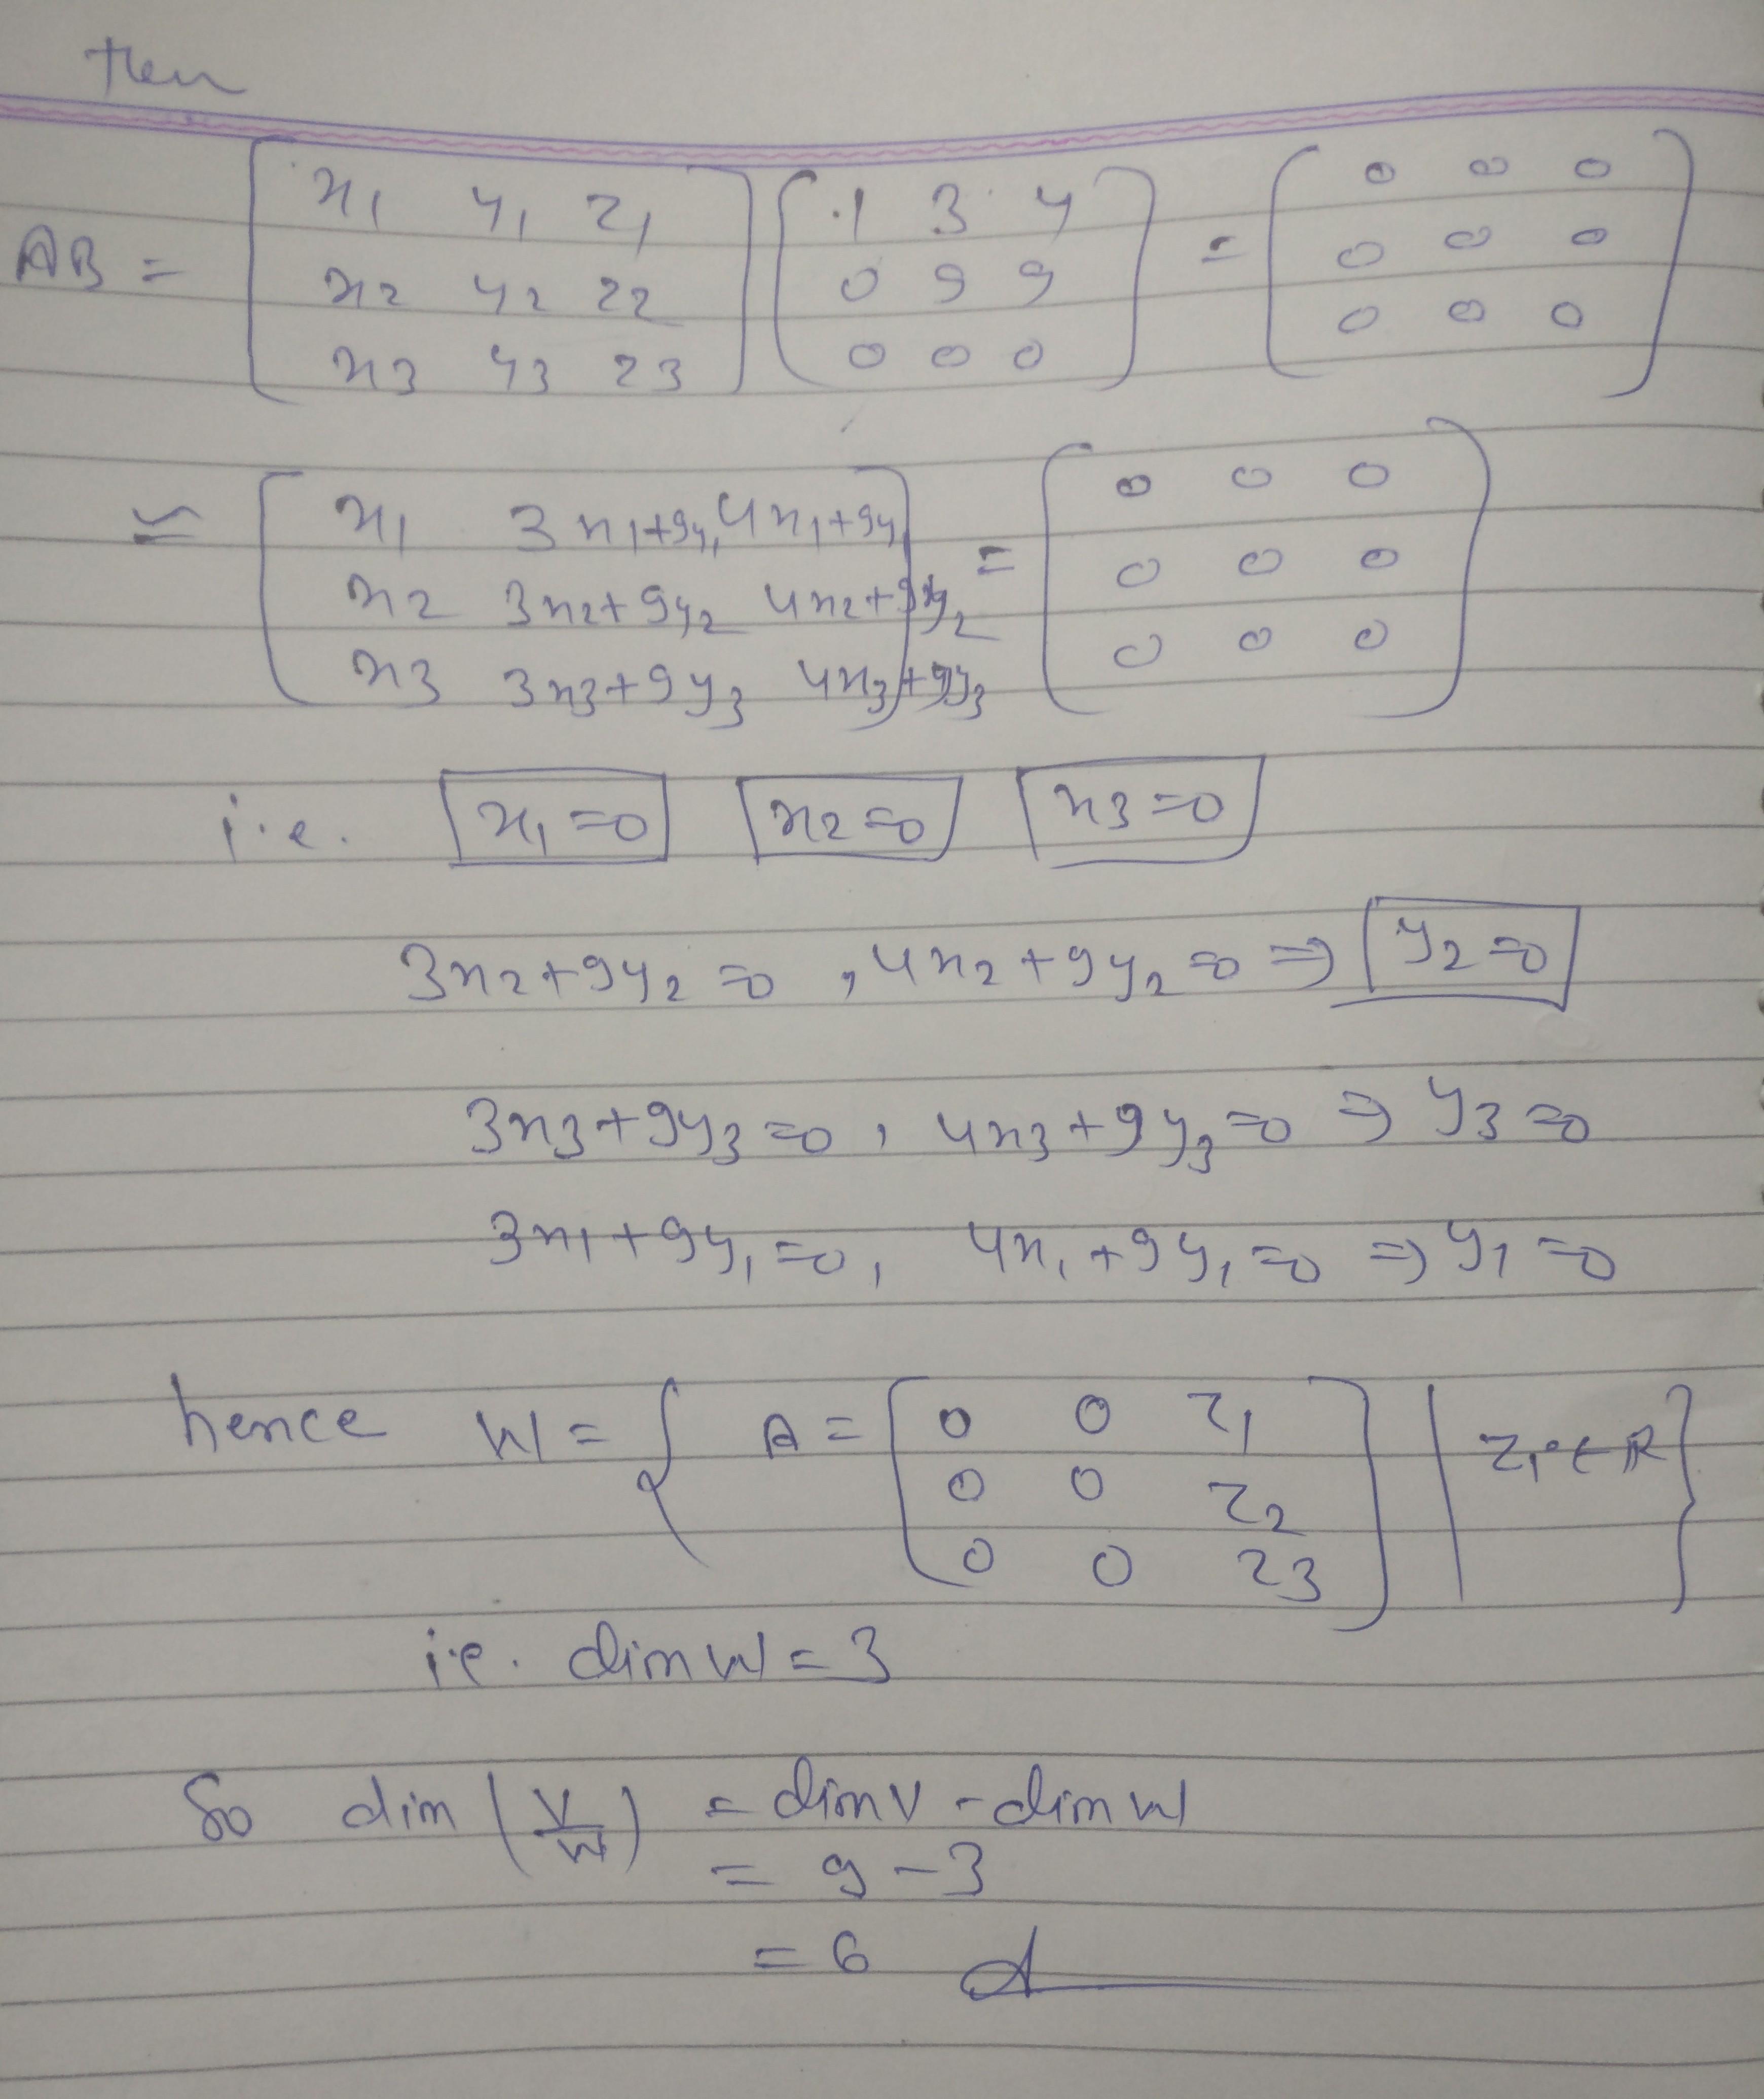 then
AB = [ x1 y1 z1 ] [ 1 3 4 ] = [ 0 0 0 ]
[ x2 y2 z2 ] [ 0 9 9 ] [ 0 0 0 ]
[ x3 y3 z3 ] [ 0 0 0 ] [ 0 0 0 ]
≃ [ x1 3x1+9y1 4x1+9y1 ] = [ 0 0 0 ]
[ x2 3x2+9y2 4x2+9y2 ] [ 0 0 0 ]
[ x3 3x3+9y3 4x3+9y3 ] [ 0 0 0 ]
i.e. x1=0 x2=0 x3=0
3x2+9y2=0, 4x2+9y2=0 ⇒ y2=0
3x3+9y3=0, 4x3+9y3=0 ⇒ y3=0
3x1+9y1=0, 4x1+9y1=0 ⇒ y1=0
hence W = { A = [ 0 0 z1 ] | zi ∈ R }
[ 0 0 z2 ]
[ 0 0 z3 ]
i.e. dim W = 3
So dim (V/W) = dim V - dim W
= 9 - 3
= 6